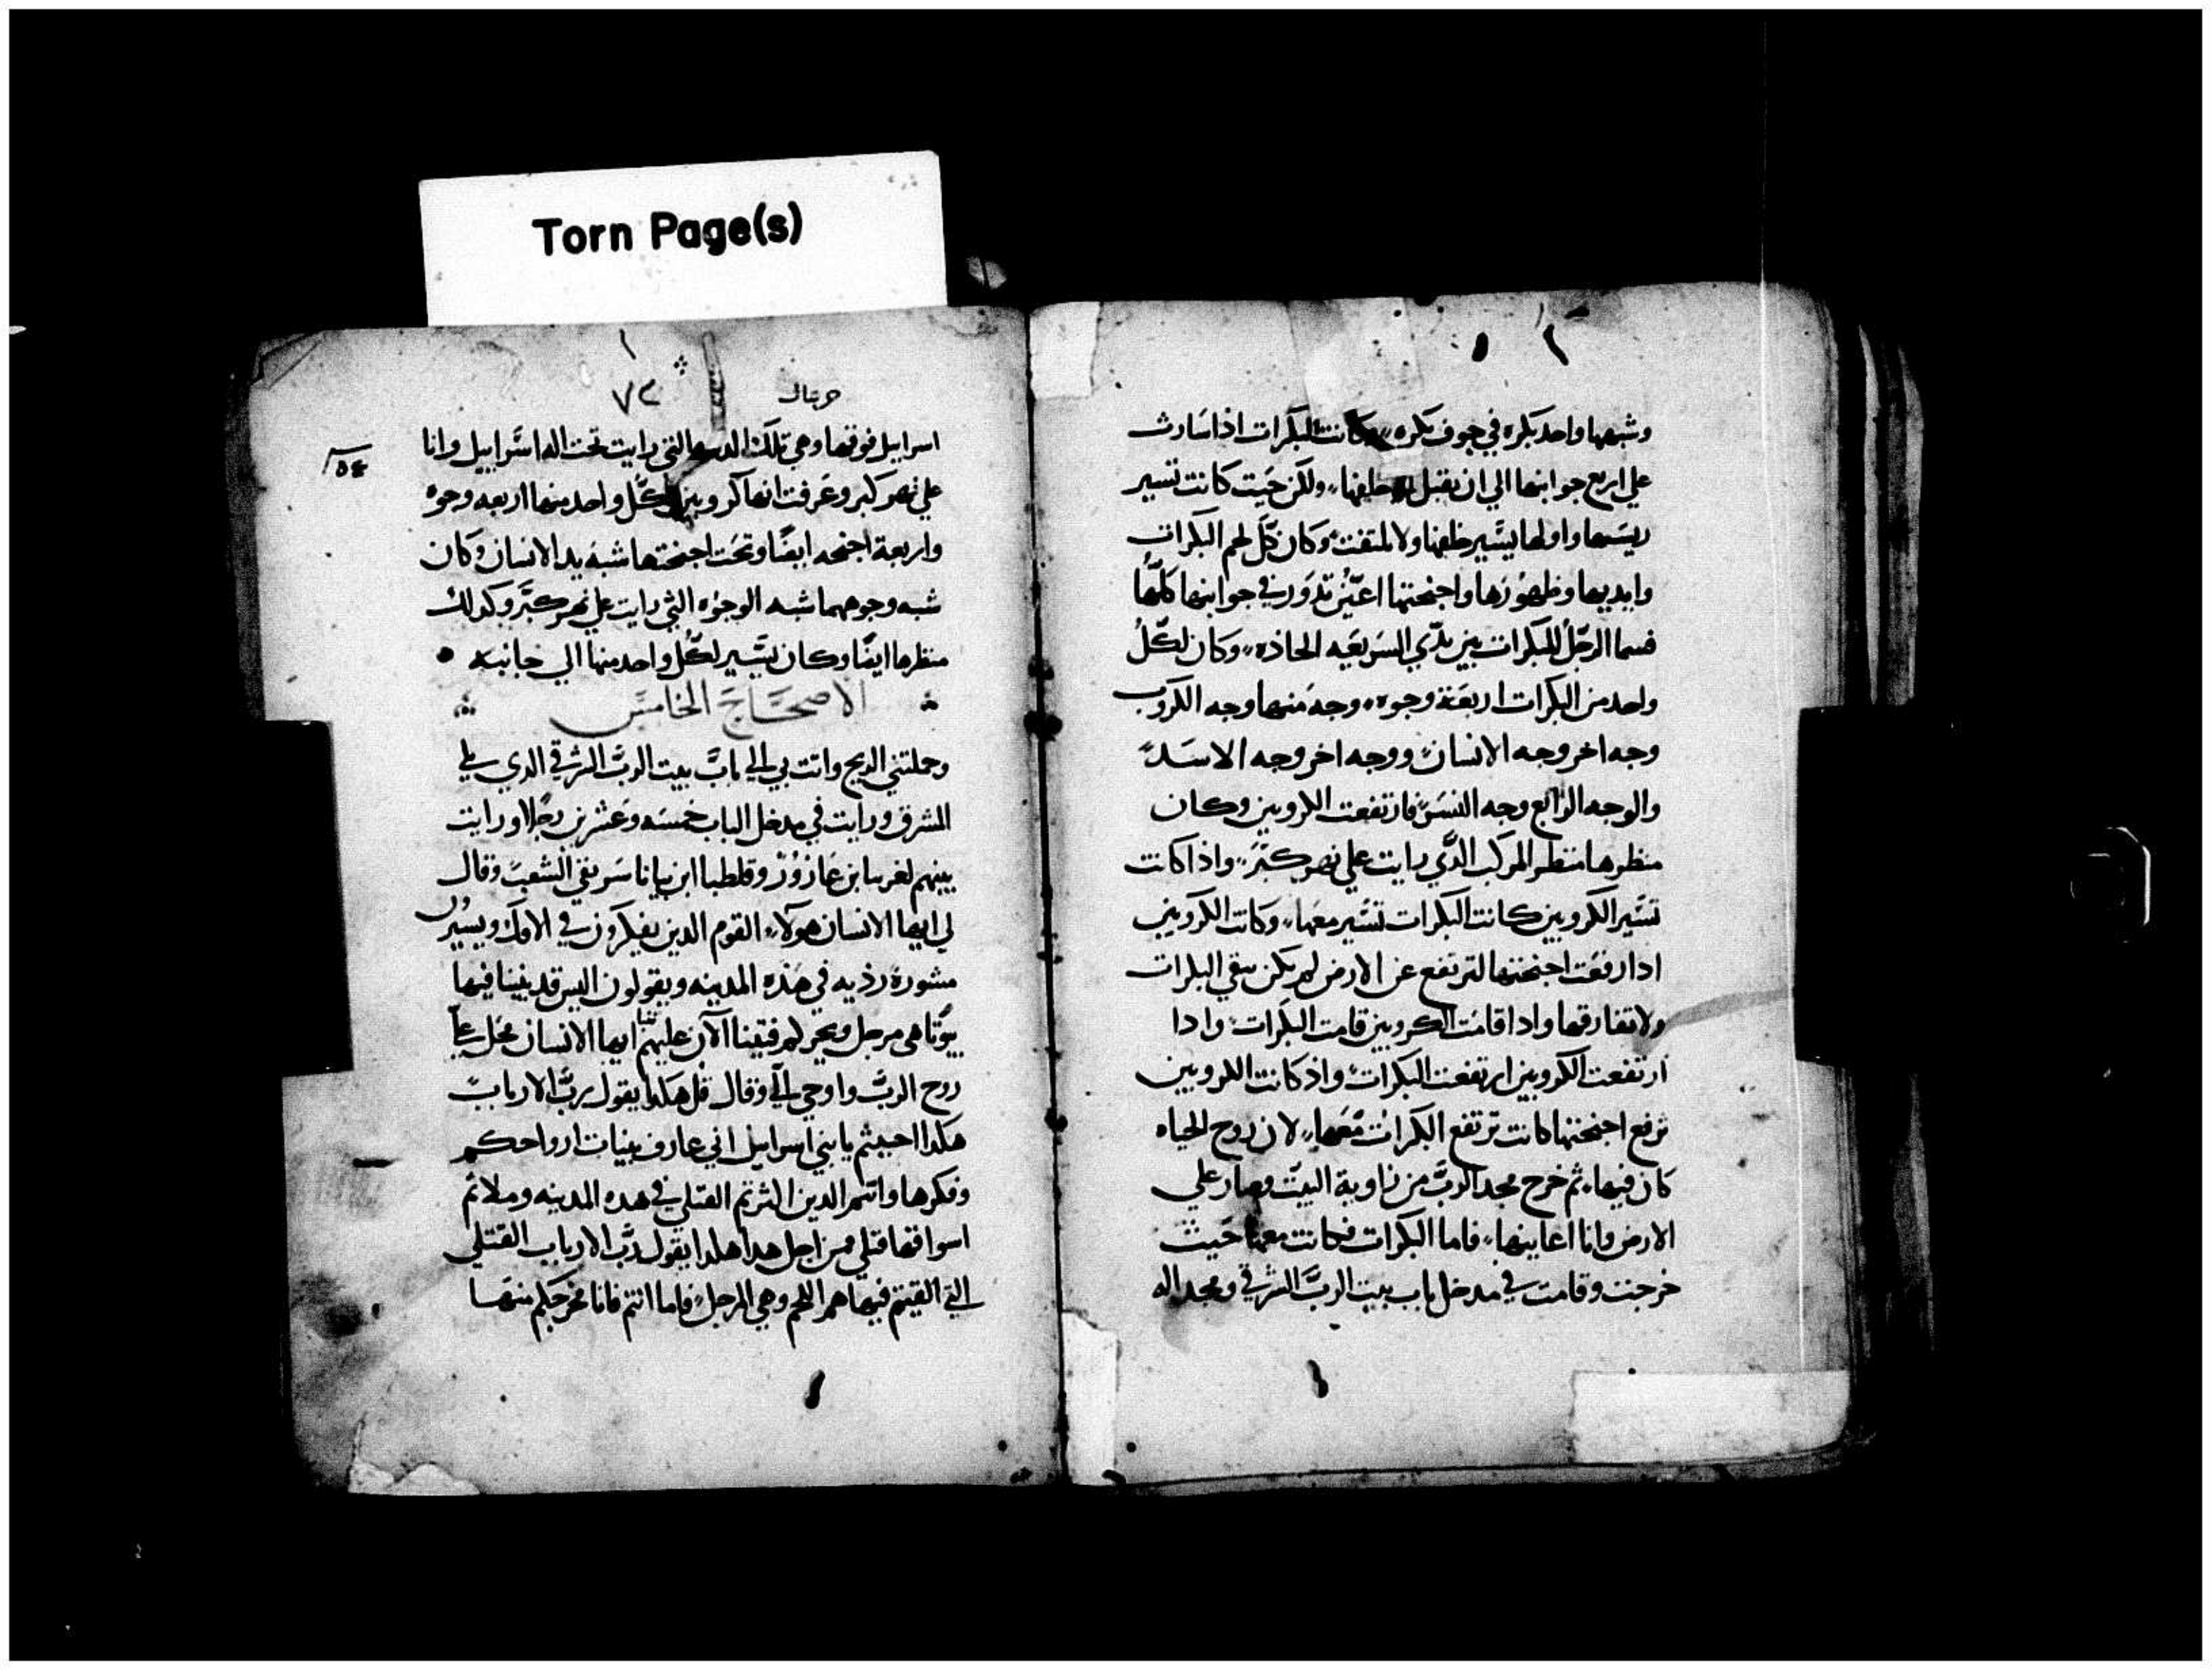 Torn Page(s)
وشبهها واحد بكره في جوف بكره وكانت البكرات اذا سارت
علي اربع جوانبها الي ان تقبل خلفها ولكن حيت كانت تسير
ريسها واولها يسير خلفها ولا تلتفت وكان كل لحم البكرات
وايديها وظهورها واجنحتها اعين تدور في جوانبها كلها
فسما الرجل للبكرات بين يدي السريعه الحاذه وكان لكل
واحد من البكرات اربعة وجوه وجه منها وجه الكروب
وجه اخر وجه الانسان ووجه اخر وجه الاسد
والوجه الرابع وجه النسر فارتفعت الكروبين وكان
منظرها منظر المركب الذي رايت علي نهر كبر واذا كانت
تسير الكروبين كانت البكرات تسير معها وكانت الكروبين
ادا رفعت اجنحتها لترتفع عن الارض لم يكن تبقي البكرات
ولا تفارقها وادا قامت الكروبين قامت البكرات وادا
ارتفعت الكروبين ارتفعت البكرات واذ كانت الكروبين
ترفع اجنحتها كانت ترتفع البكرات معها لان روح الحياه
كان فيها ثم خرج مجد الرب من زاوية البيت وصار علي
الارض وانا اعاينها فاما البكرات فكانت معها حيث
خرجت وقامت في مدخل باب بيت الرب الشرقي ومجد اله
٧٢
اسراييل فوقها وهي تلك التي رايت تحت اله اسراييل وانا
علي نهر كبر وعرفت انها كروبين لكل واحد منها اربعه وجوه
واربعة اجنحه ايضا وتحت اجنحتها شبه يد الانسان وكان
شبه وجوهها شبه الوجوه التي رايت علي نهر كبر وكدلك
منظرها ايضا وكان يسير لكل واحد منها الي جانبه
الاصحاح الخامس
وحملتني الريح واتت بي الي باب بيت الرب الشرقي الدي يلي
المشرق ورايت في مدخل الباب خمسه وعشرين رجلا ورايت
بينهم ابن عازور وقلطيا ابن بانا الشعب وقال
لي ايها الانسان هولاء القوم الدين يفكرون في الافك ويسيرون
مشورة رذيه في هذه المدينه ويقولون اليس قد بنينا فيها
بيوتا هي مرجل ونحن لحم ايها الانسان فحل علي
روح الرب واوحي الي وقال قل هكدا يقول رب الارباب
هكدا احببتم يا بني اسراييل اني عارف بنيات ارواحكم
وفكرها وانتم الدين اكثرتم القتلي في هده المدينه وملاتم
اسواقها قتلي من اجل هدا هكدا يقول رب الارباب القتلي
التي القيتم فيها هم اللحم وهي المرجل فاما انتم فانا مخرجكم منها